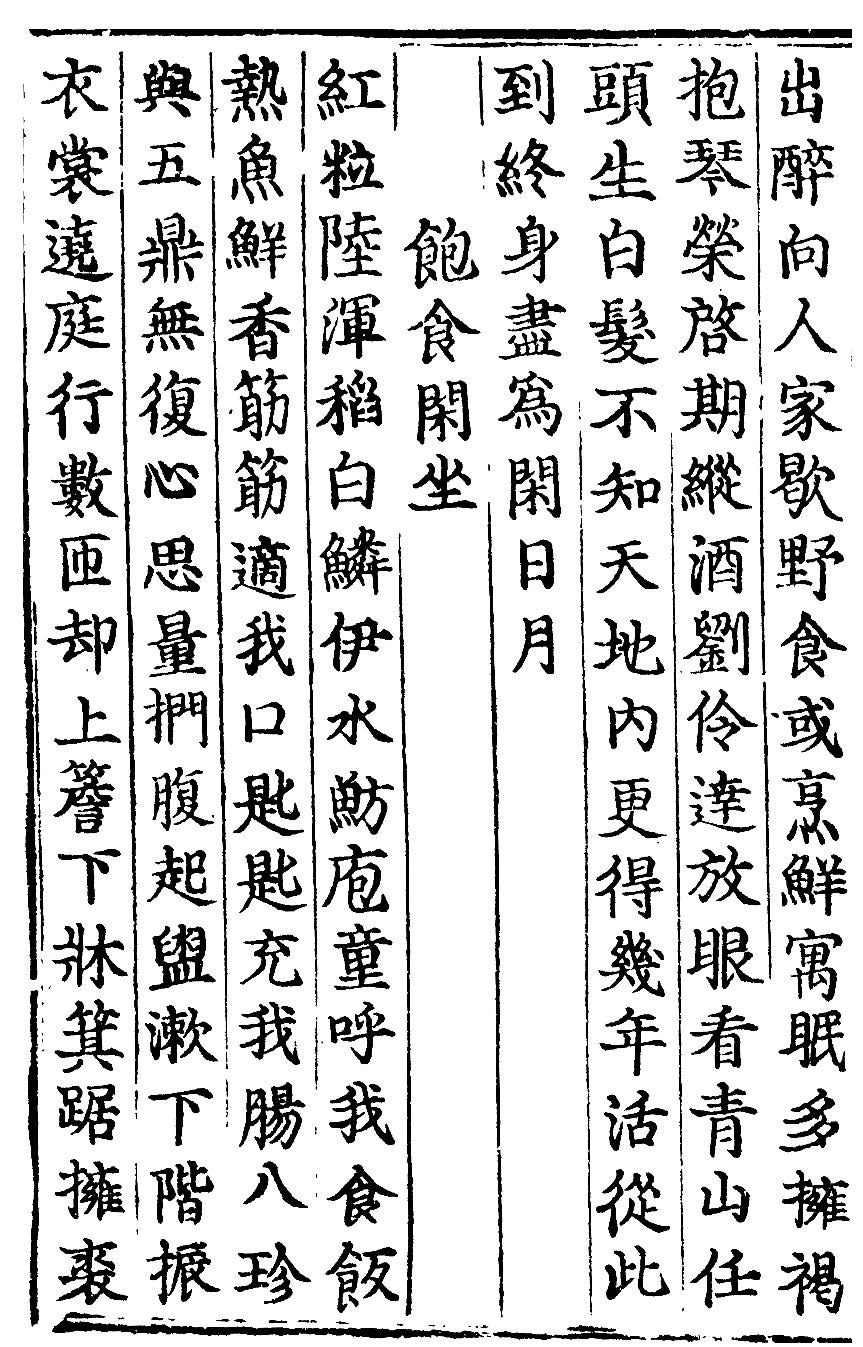 出醉向人家歇野食或烹鮮寓眠多擁褐
抱琴榮啓期縱酒劉伶達放眼看青山任
頭生白髮不知天地內更得幾年活從此
到終身盡爲閑日月
飽食閑坐
紅粒陸渾稻白鱗伊水魴庖童呼我食飯
熱魚鮮香筯筯適我口匙匙充我腸八珍
與五鼎無復心思量捫腹起盥漱下階振
衣裳遶庭行數匝却上簷下牀箕踞擁裘